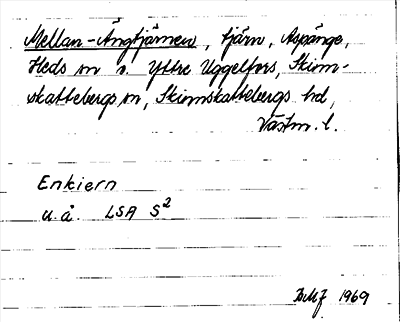 Mellan-Ängtjärnen, tjärn, Aspänge,
Heds sn o. Yttre Uggelfors, Skinn-
skattebergs sn, Skinnskattebergs hd,
Västm. l.
Enkiern
u.å. LSA S2
BMJ 1969